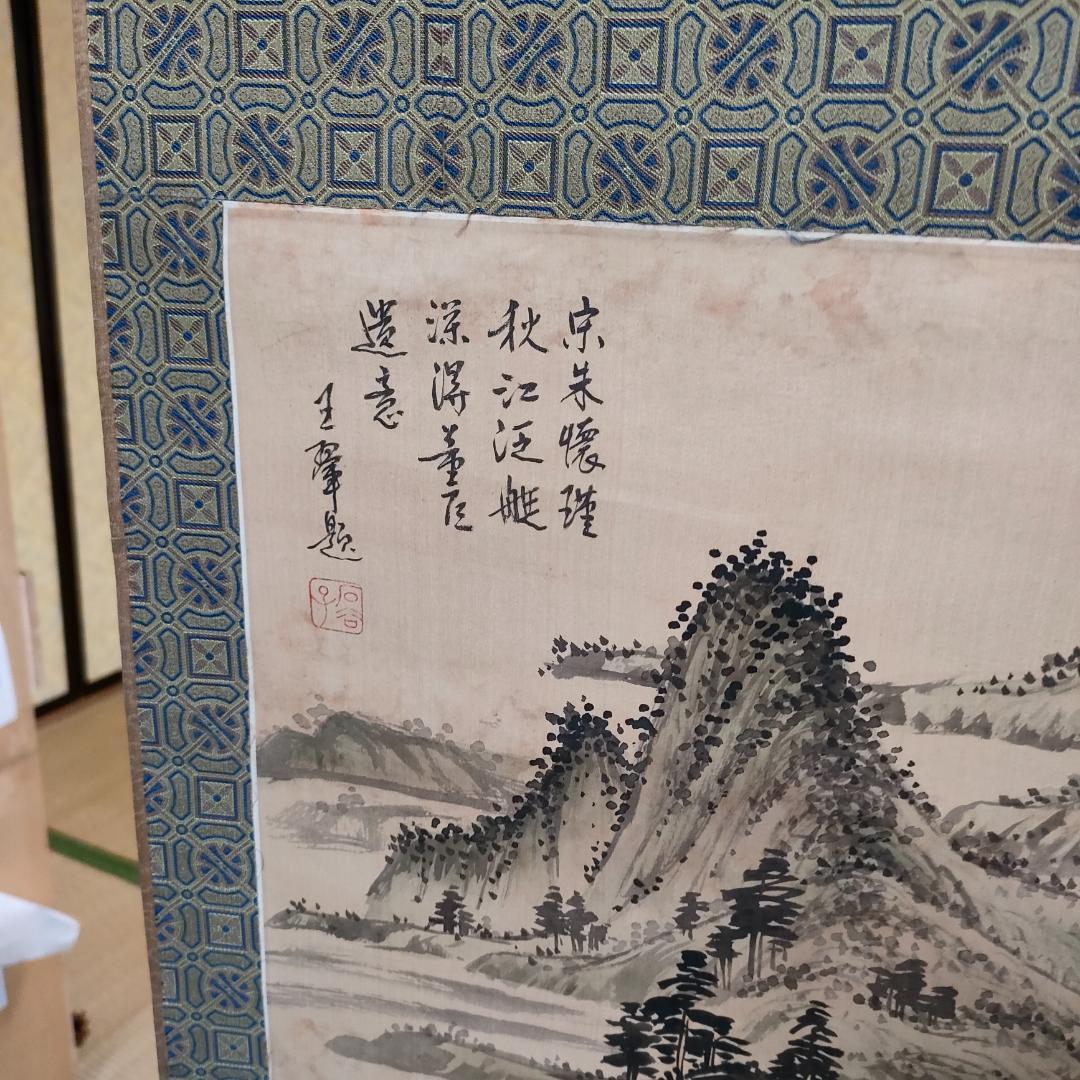 宋朱懷瑾
秋江泛艇
深得董巨
遺意
王翬題
石谷子